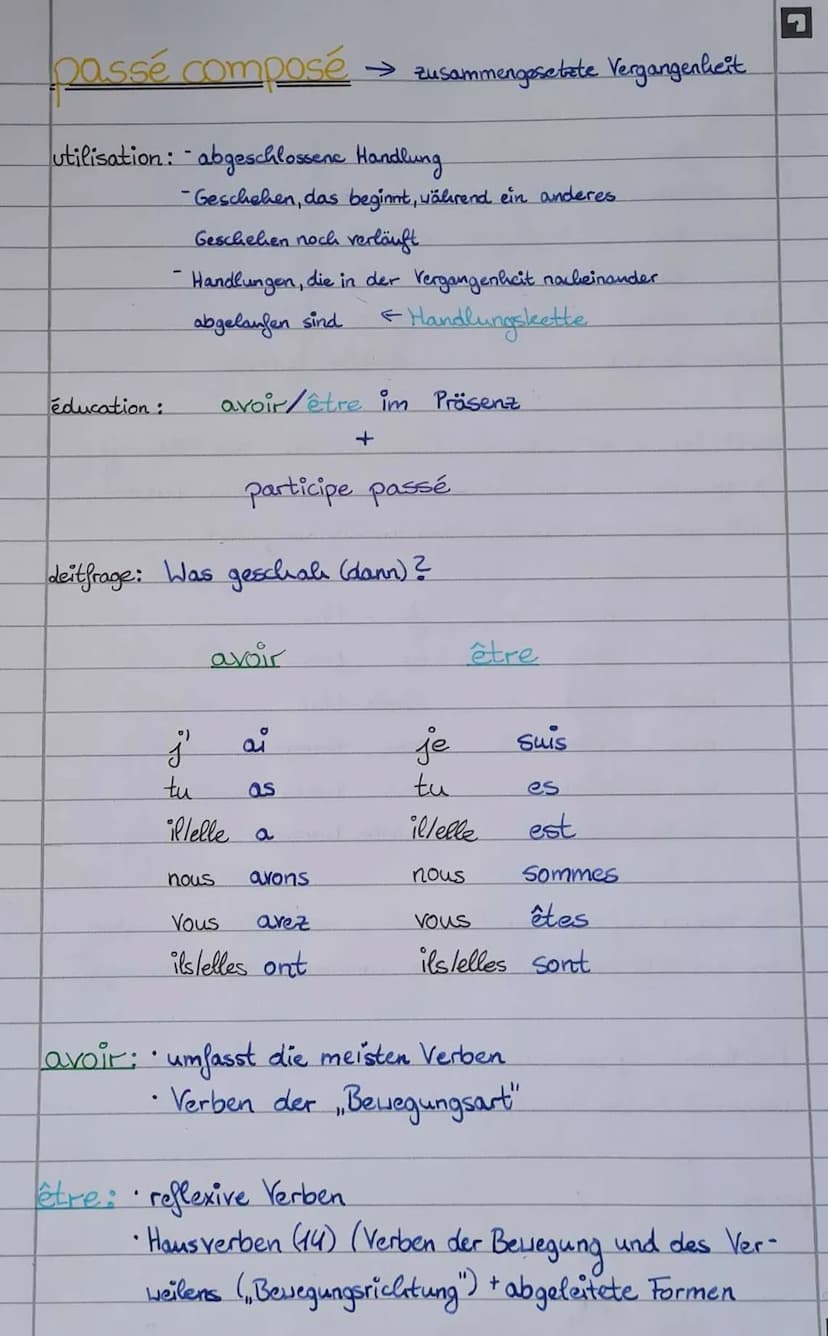 passé composé → zusammengesetzte Vergangenheit
utilisation: - abgeschlossene Handlung
- Geschehen, das beginnt, während ein anderes
Geschehen noch verläuft
- Handlungen, die in der Vergangenheit nacheinander
abgelaufen sind ← Handlungskette
éducation: avoir/être im Präsenz
+
participe passé
Leitfrage: Was geschah (dann)?
avoir être
j' ai je suis
tu as tu es
il/elle a il/elle est
nous avons nous sommes
vous avez vous êtes
ils/elles ont ils/elles sont
avoir: · umfasst die meisten Verben
· Verben der „Bewegungsart"
être: · reflexive Verben
· Hausverben (14) (Verben der Bewegung und des Ver-
weilens („Bewegungsrichtung") + abgeleitete Formen